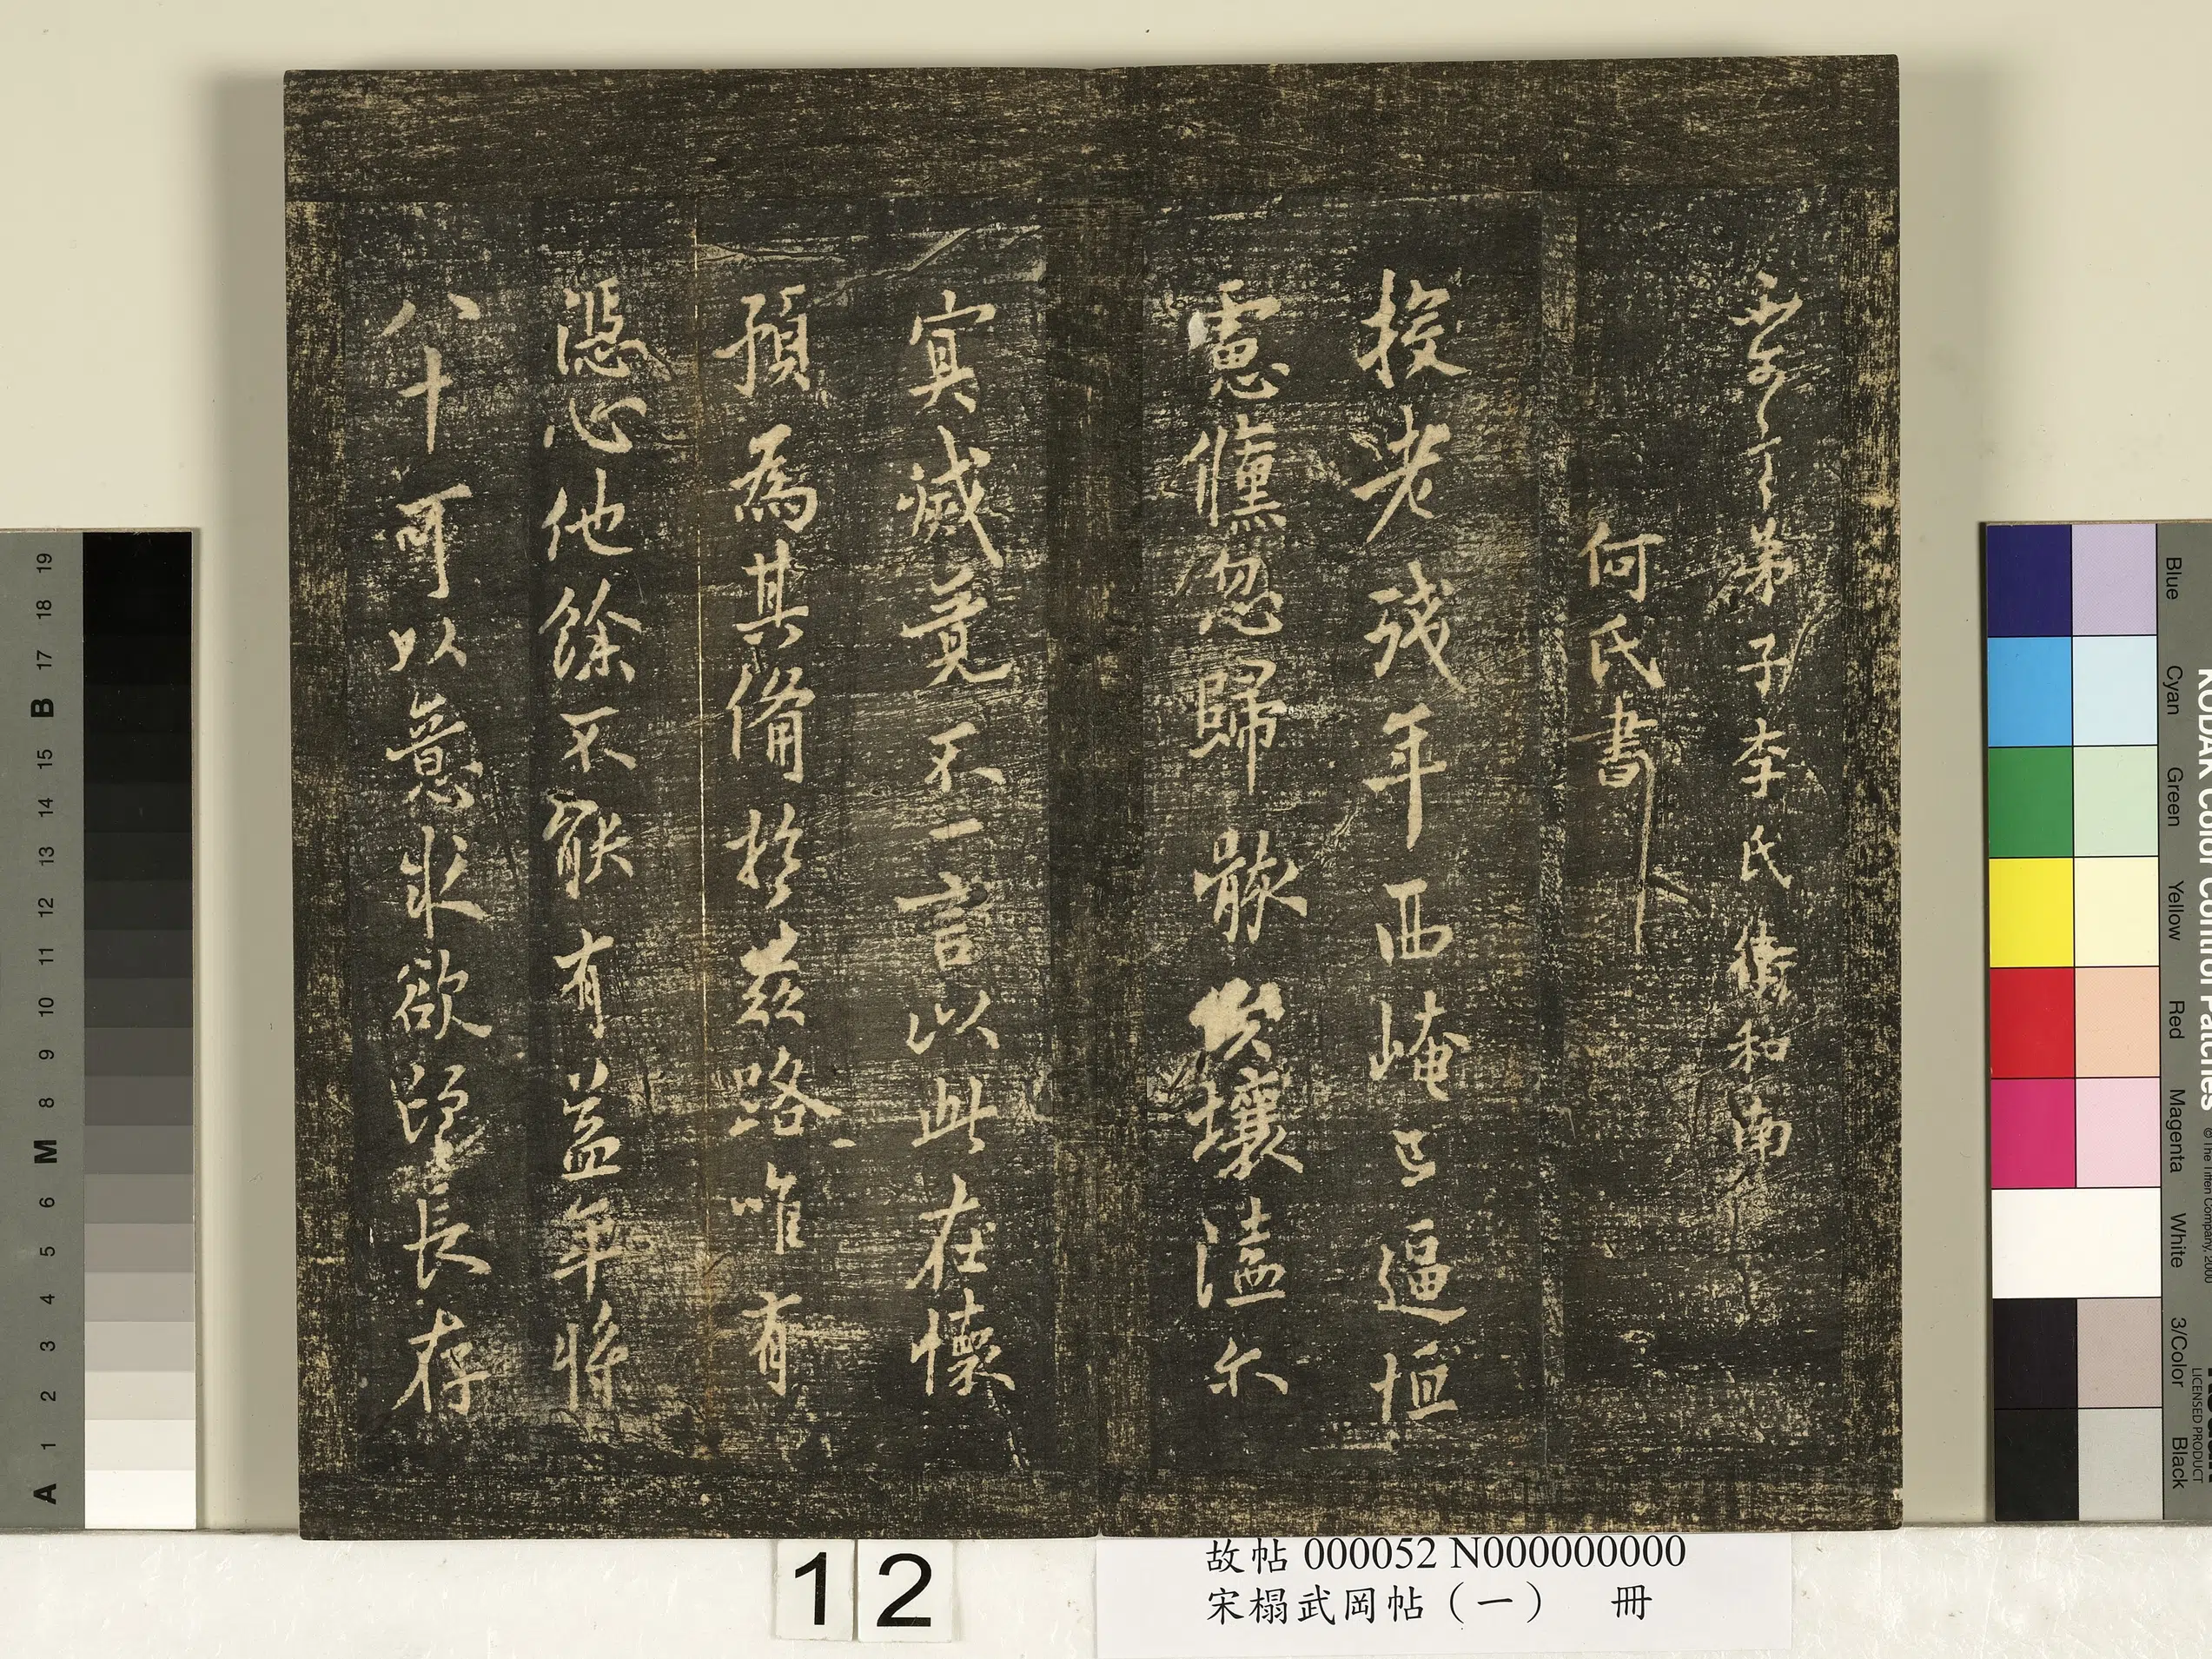 不可言弟子李氏衛和南
何氏書
投老殘年西崦已逼恒
慮儻忽歸骸埃壤溘尒
冥滅竟不一言以此在懷
預為其備於茲路唯有
憑心他餘不能有益年將
八十可以意求欲長存
12
故帖 000052 N000000000
宋榻武岡帖（一） 冊
KODAK Color Control Patches © The Tiffen Company, 2000
LICENSED PRODUCT
Blue Cyan Green Yellow Red Magenta White 3/Color Black
A 1 2 3 4 5 6 M 8 9 10 11 12 13 14 15 B 17 18 19